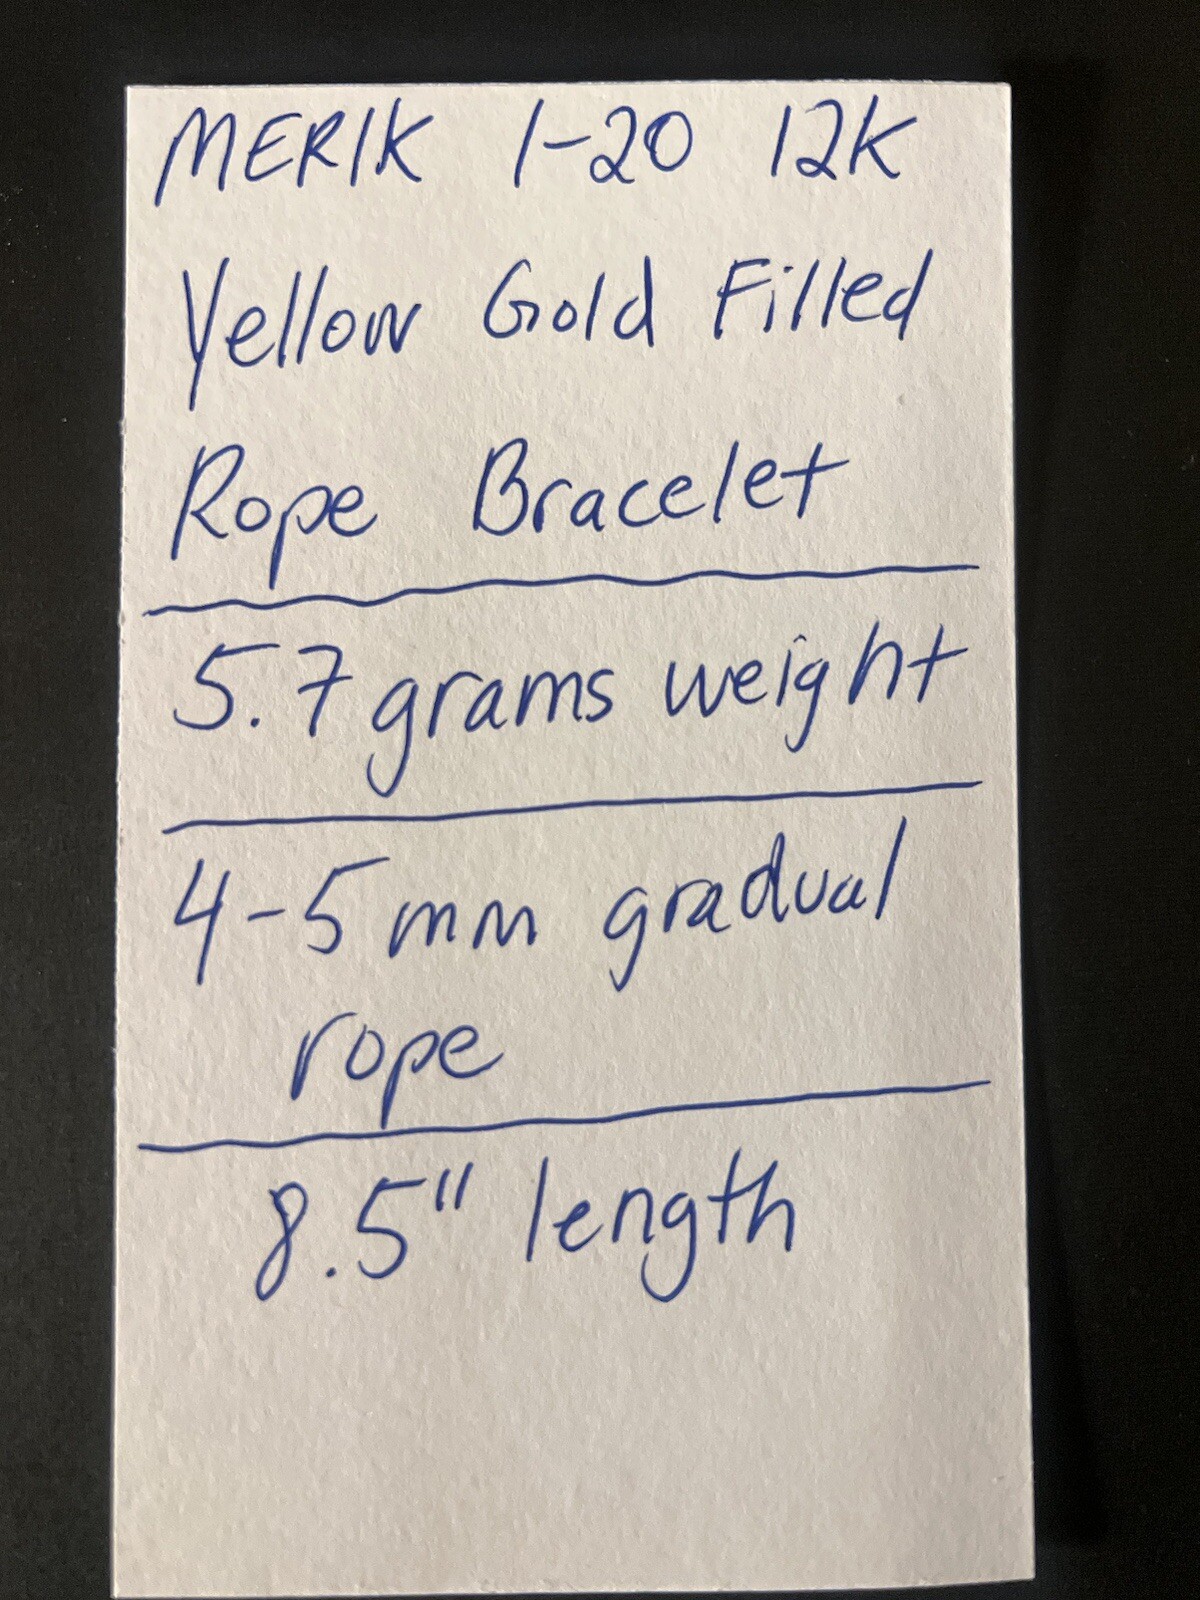 MERIK 1-20 12K
Yellow Gold Filled
Rope Bracelet
5.7 grams weight
4-5mm gradual
rope
8.5" length